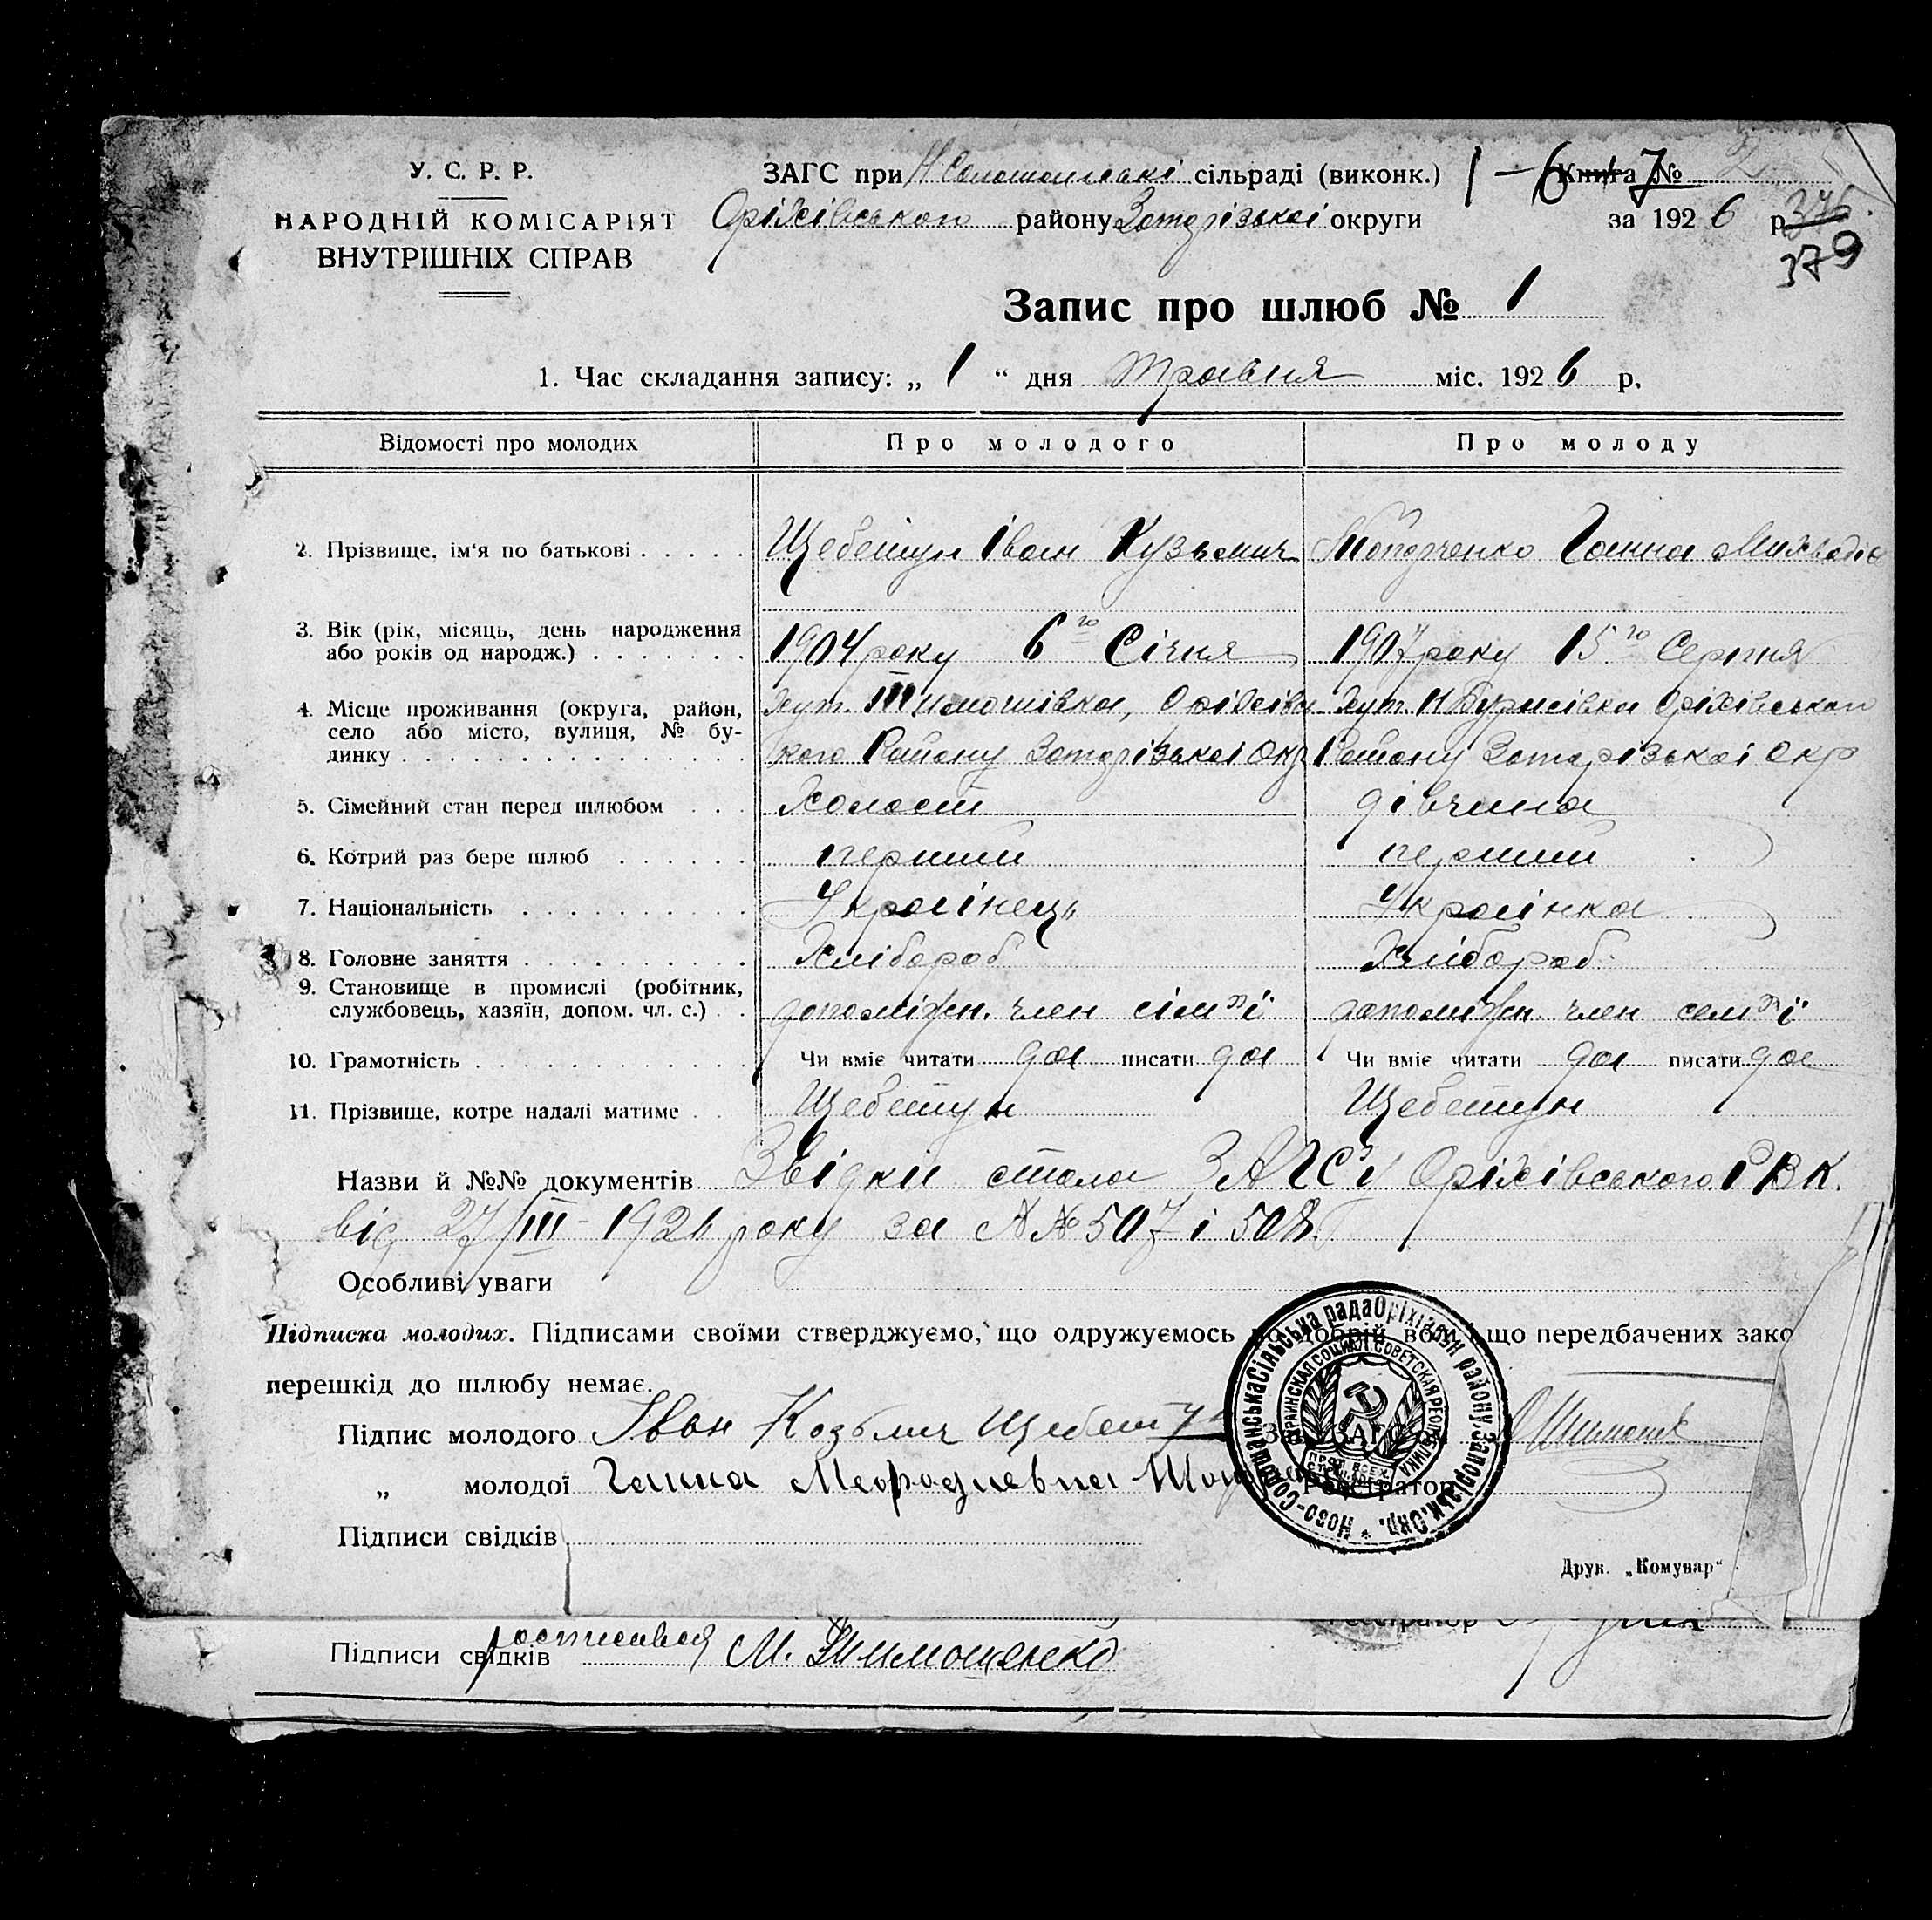 У. С. Р. Р.
НАРОДНІЙ КОМІСАРІЯТ
ВНУТРІШНІХ СПРАВ
ЗАГС при сільраді (виконк.) 1 – 6 Книга 7 № 2
Оріхівського району Запорізької округи за 1926 р. 376
379
Запис про шлюб № 1
1. Час складання запису: „ 1 “ дня травня міс. 1926 р.
Відомості про молодих Про молодого Про молоду
2. Прізвище, ім'я по батькові Щебетун Іван Кузьмич Ганна
3. Вік (рік, місяць, день народження або років од народж.) 1904 року 6го Січня 1907 року 15го Серпня
4. Місце проживання (округа, район, село або місто, вулиця, № будинку хут. Тимошівка, Оріхівського Району Запорізької Окр хут. Оріхівського Району Запорізької Окр
5. Сімейний стан перед шлюбом Холост дівчина
6. Котрий раз бере шлюб перший перший
7. Національність Українець Українка
8. Головне заняття Хлібороб Хлібороб
9. Становище в промислі (робітник, службовець, хазяїн, допом. чл. с.) допоміжн. член сімʼї допоміжн. член семʼї
10. Грамотність Чи вміє читати да писати да Чи вміє читати да писати да
11. Прізвище, котре надалі матиме Щебетун Щебетун
Назви й №№ документів Звідки стола ЗАГСʼу Оріхівського РВК.
від 27/III – 1926 року за №№ 507 і 508.
Особливі уваги
Підписка молодих. Підписами своїми стверджуємо, що одружуємось по добрій волі і що передбачених зако
перешкід до шлюбу немає.
Підпис молодого Іван Козьмич Щебетун Зав. ЗАГС'ом
„ молодої Ганна Реєстратор
Ново-Солошанська Сільська рада Оріхівськ району, Запорізьк. Окр.
УКРАИНСКАЯ СОЦИАЛ. СОВЕТСКАЯ РЕСПУБЛИКА
Підписи свідків
Друк. „Комунар“
Реєстратор
Підписи свідків М. Тимошенко